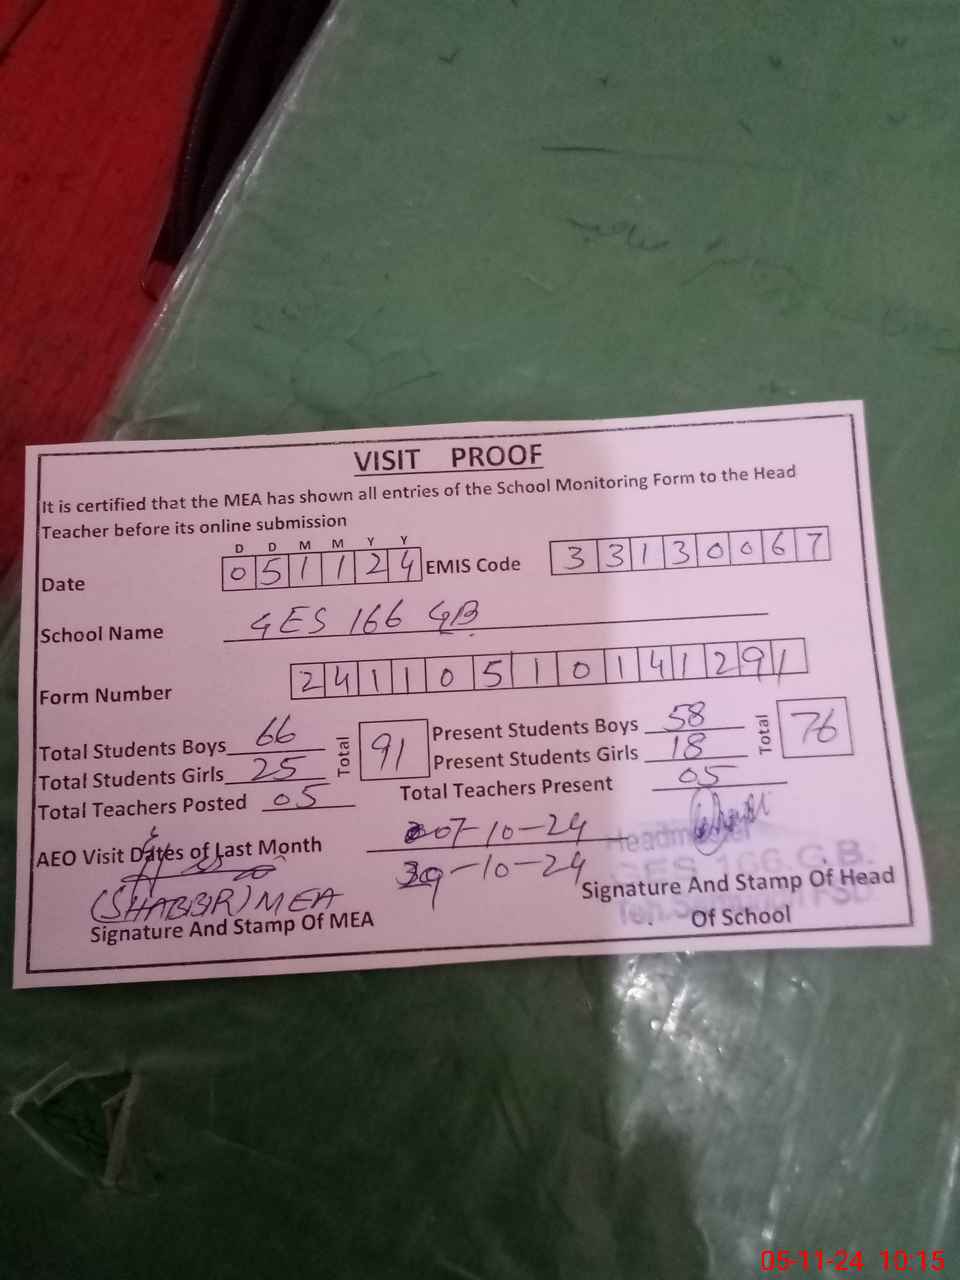 VISIT PROOF
It is certified that the MEA has shown all entries of the School Monitoring Form to the Head
Teacher before its online submission
D D M M Y Y
Date 051124 EMIS Code 33130067
School Name GES 166 GB
Form Number 24110510141291
Total Students Boys 66 Total 91 Present Students Boys 58 Total 76
Total Students Girls 25 Present Students Girls 18
Total Teachers Posted 05 Total Teachers Present 05
AEO Visit Dates of Last Month 07-10-24
-10-24
Headmaster
GES 166 G.B.
Teh. FSD
(SHABBIR) MEA
Signature And Stamp Of MEA
Signature And Stamp Of Head
Of School
05-11-24 10:15